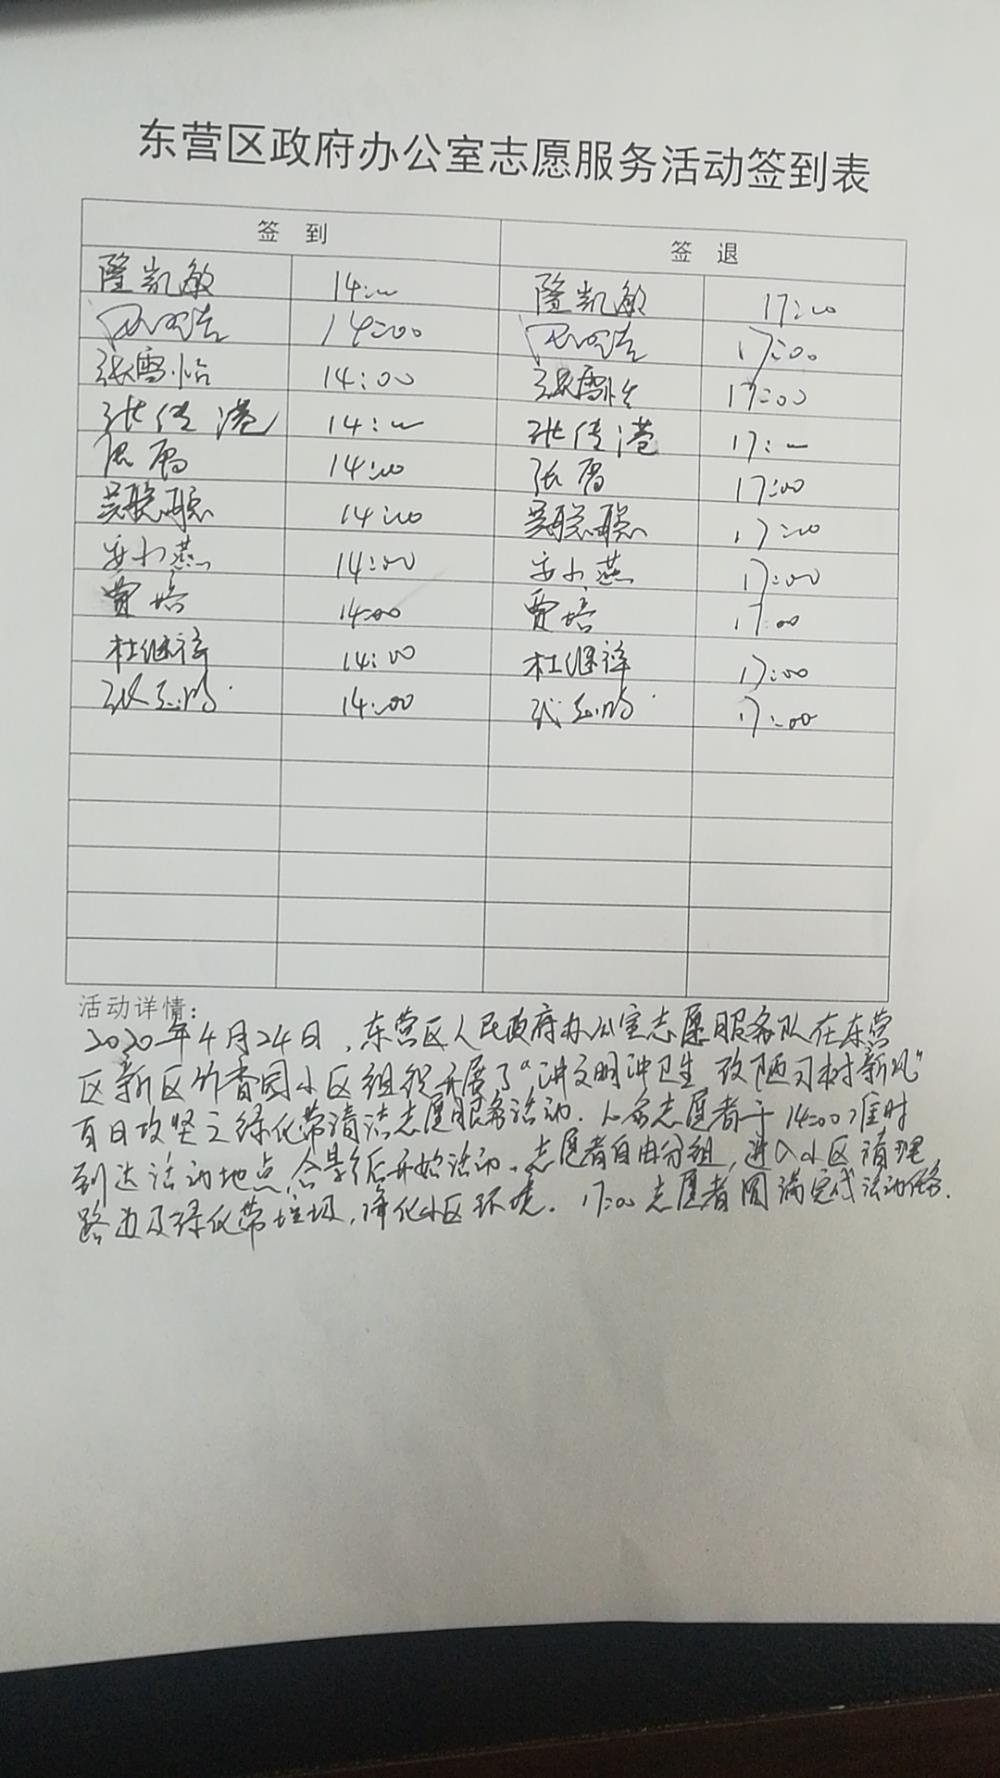 东营区政府办公室志愿服务活动签到表
签 到 签 退
隆凯敏 14:00 隆凯敏 17:00
14:00 17:00
张雪怡 14:00 张雪怡 17:00
张传港 14:00 张传港 17:00
张雷 14:00 张雷 17:00
吴聪聪 14:00 吴聪聪 17:00
安小燕 14:00 安小燕 17:00
贾培 14:00 贾培 17:00
杜继祥 14:00 杜继祥 17:00
张志鸿 14:00 张志鸿 17:00
活动详情:
2020年4月24日,东营区人民政府办公室志愿服务队在东营
区新区竹香园小区组织开展了“讲文明讲卫生 改陋习树新风”
百日攻坚之绿化带清洁志愿服务活动.人名志愿者于14:00准时
到达活动地点,合影后开始活动。志愿者自由分组,进入小区清理
路边及绿化带垃圾,净化小区环境.17:00志愿者圆满完成活动任务.